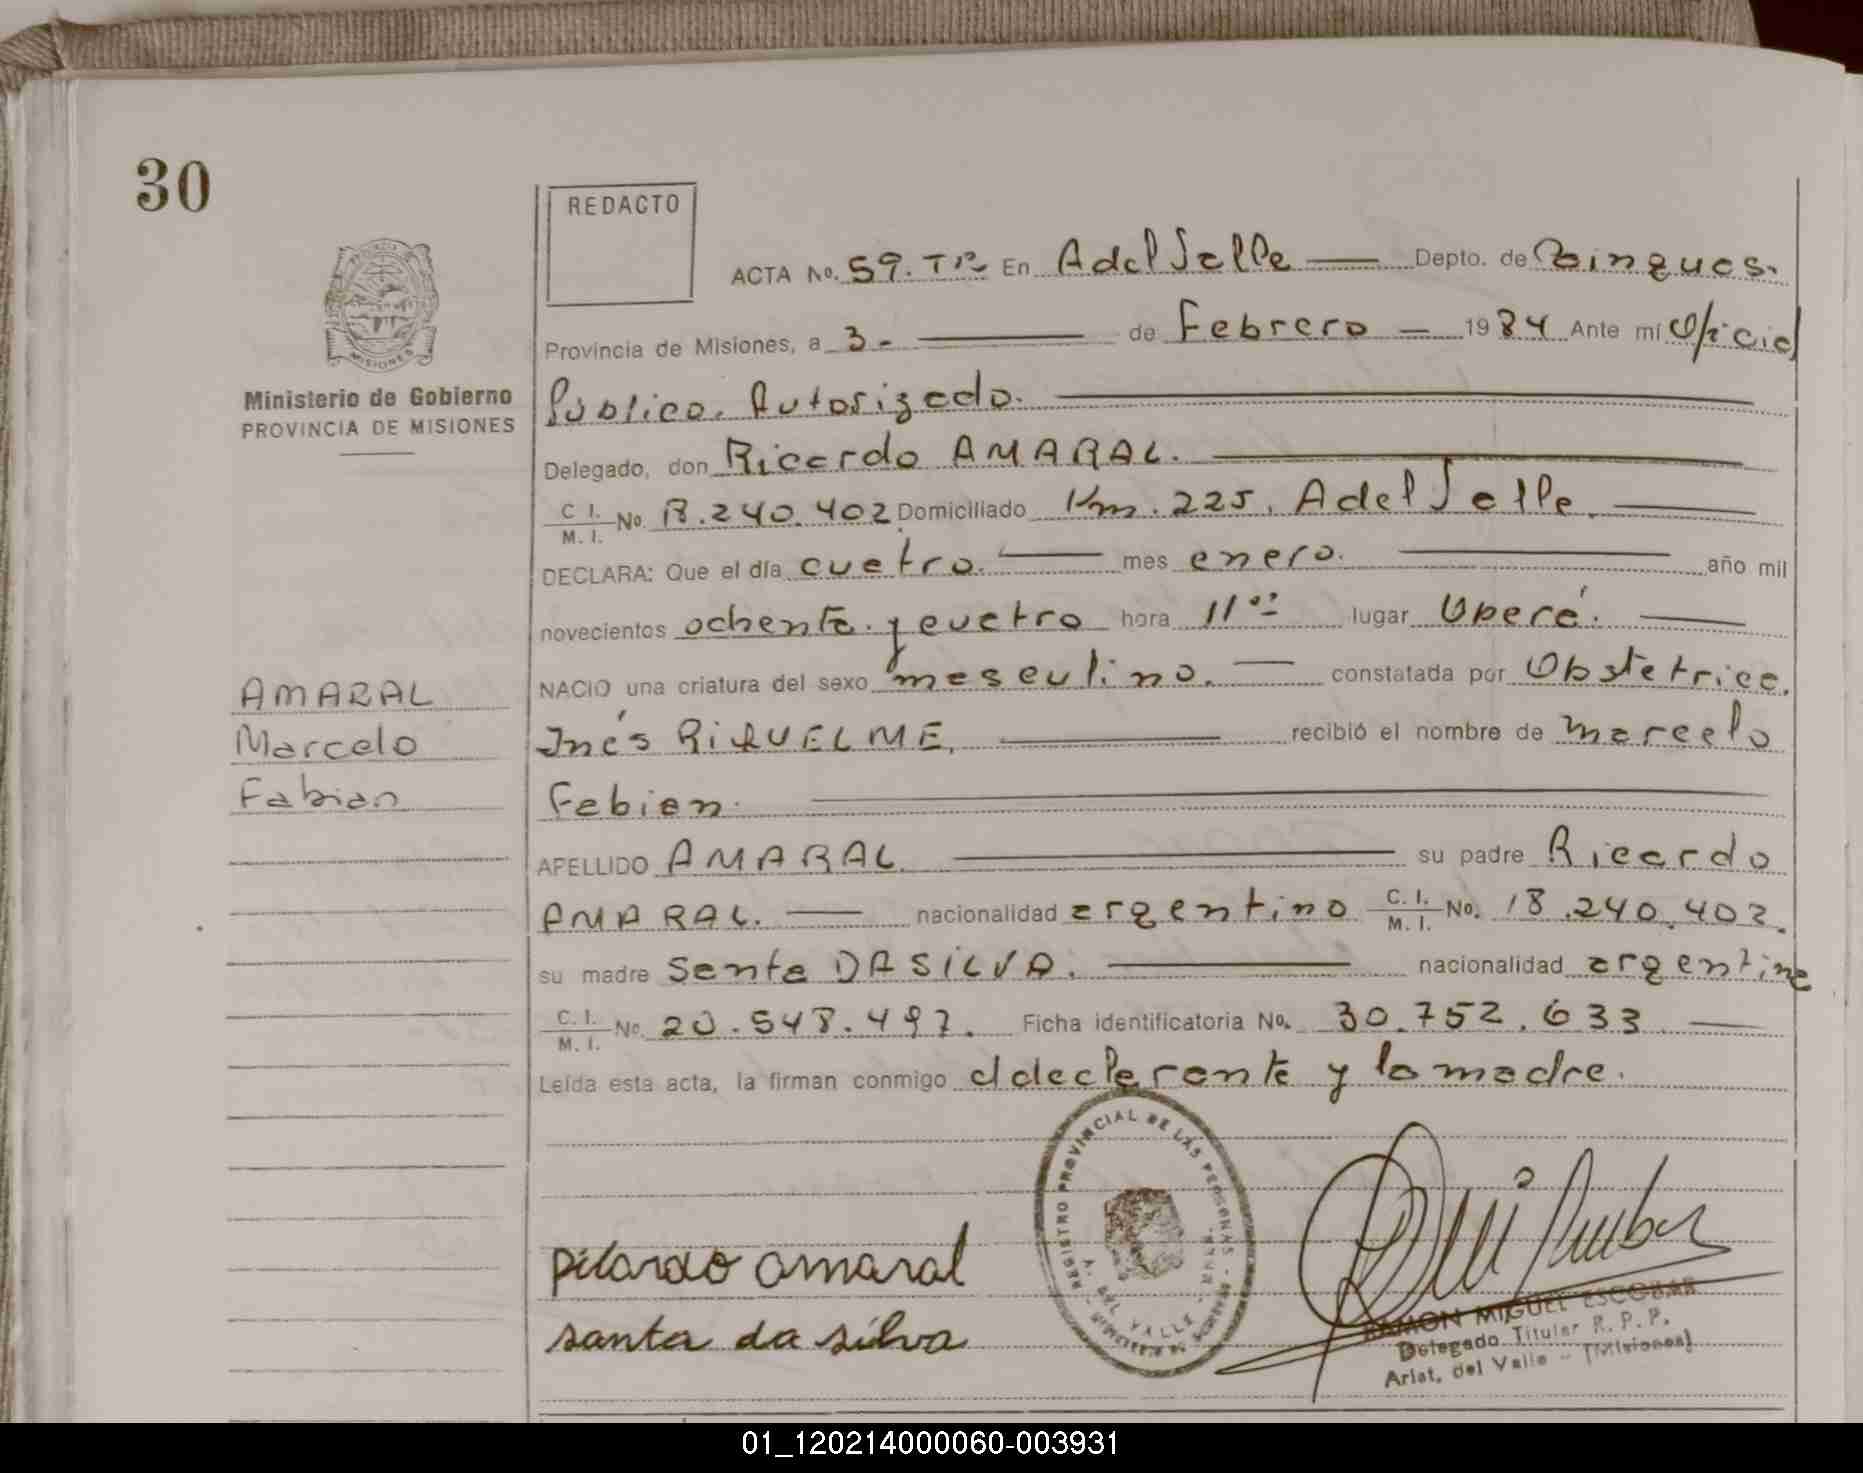 30
REDACTO
ACTA No. 59. Tº En A del Valle Depto. de Cainguas.
Provincia de Misiones, a 3 - de Febrero - 1984 Ante mí Oficial
Público. Autorizado.
Ministerio de Gobierno
PROVINCIA DE MISIONES
Delegado, don Ricardo AMARAL.
C I. M. I. No. 18.240.402 Domiciliado Km. 225. A del Valle.
DECLARA: Que el día cuatro. mes enero. año mil
novecientos ochenta y cuatro hora 11⁰⁰ lugar Oberá.
NACIO una criatura del sexo masculino. constatada por Obstetrica.
Inés RIQUELME. recibió el nombre de Marcelo
Fabian.
AMARAL
Marcelo
Fabian
APELLIDO AMARAL su padre Ricardo
AMARAL. nacionalidad argentino C. I. M. I. No. 18.240.402.
su madre Santa DA SILVA. nacionalidad argentina
C. I. M. I. No. 20.548.497. Ficha identificatoria No. 30.752.633
Leída esta acta, la firman conmigo el declarante y la madre.
REGISTRO PROVINCIAL DE LAS PERSONAS
A. DEL VALLE
Ricardo amaral
santa da silva
RAMON MIGUEL ESCOBAR
Delegado Titular R. P. P.
Arist. del Valle - (Misiones)
01_120214000060-003931